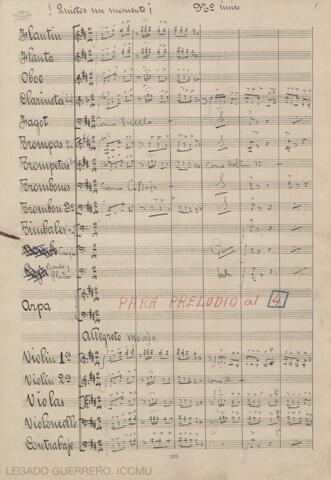 ¡Quietos un momento! Nº único
Flautín
Flauta
Oboe
Clarinetes
Fagot Como Vcello
Trompas
Trompetas
Trombones Como C. Bajo
Trombón 3º
Timbales
Caja
Bombo y Platos
Arpa PARA PRELUDIO al 4
Allegreto mondo
Violin 1os
Violin 2os
Violas
Violoncello
Contrabajo
LEGADO GUERRERO. ICCMU